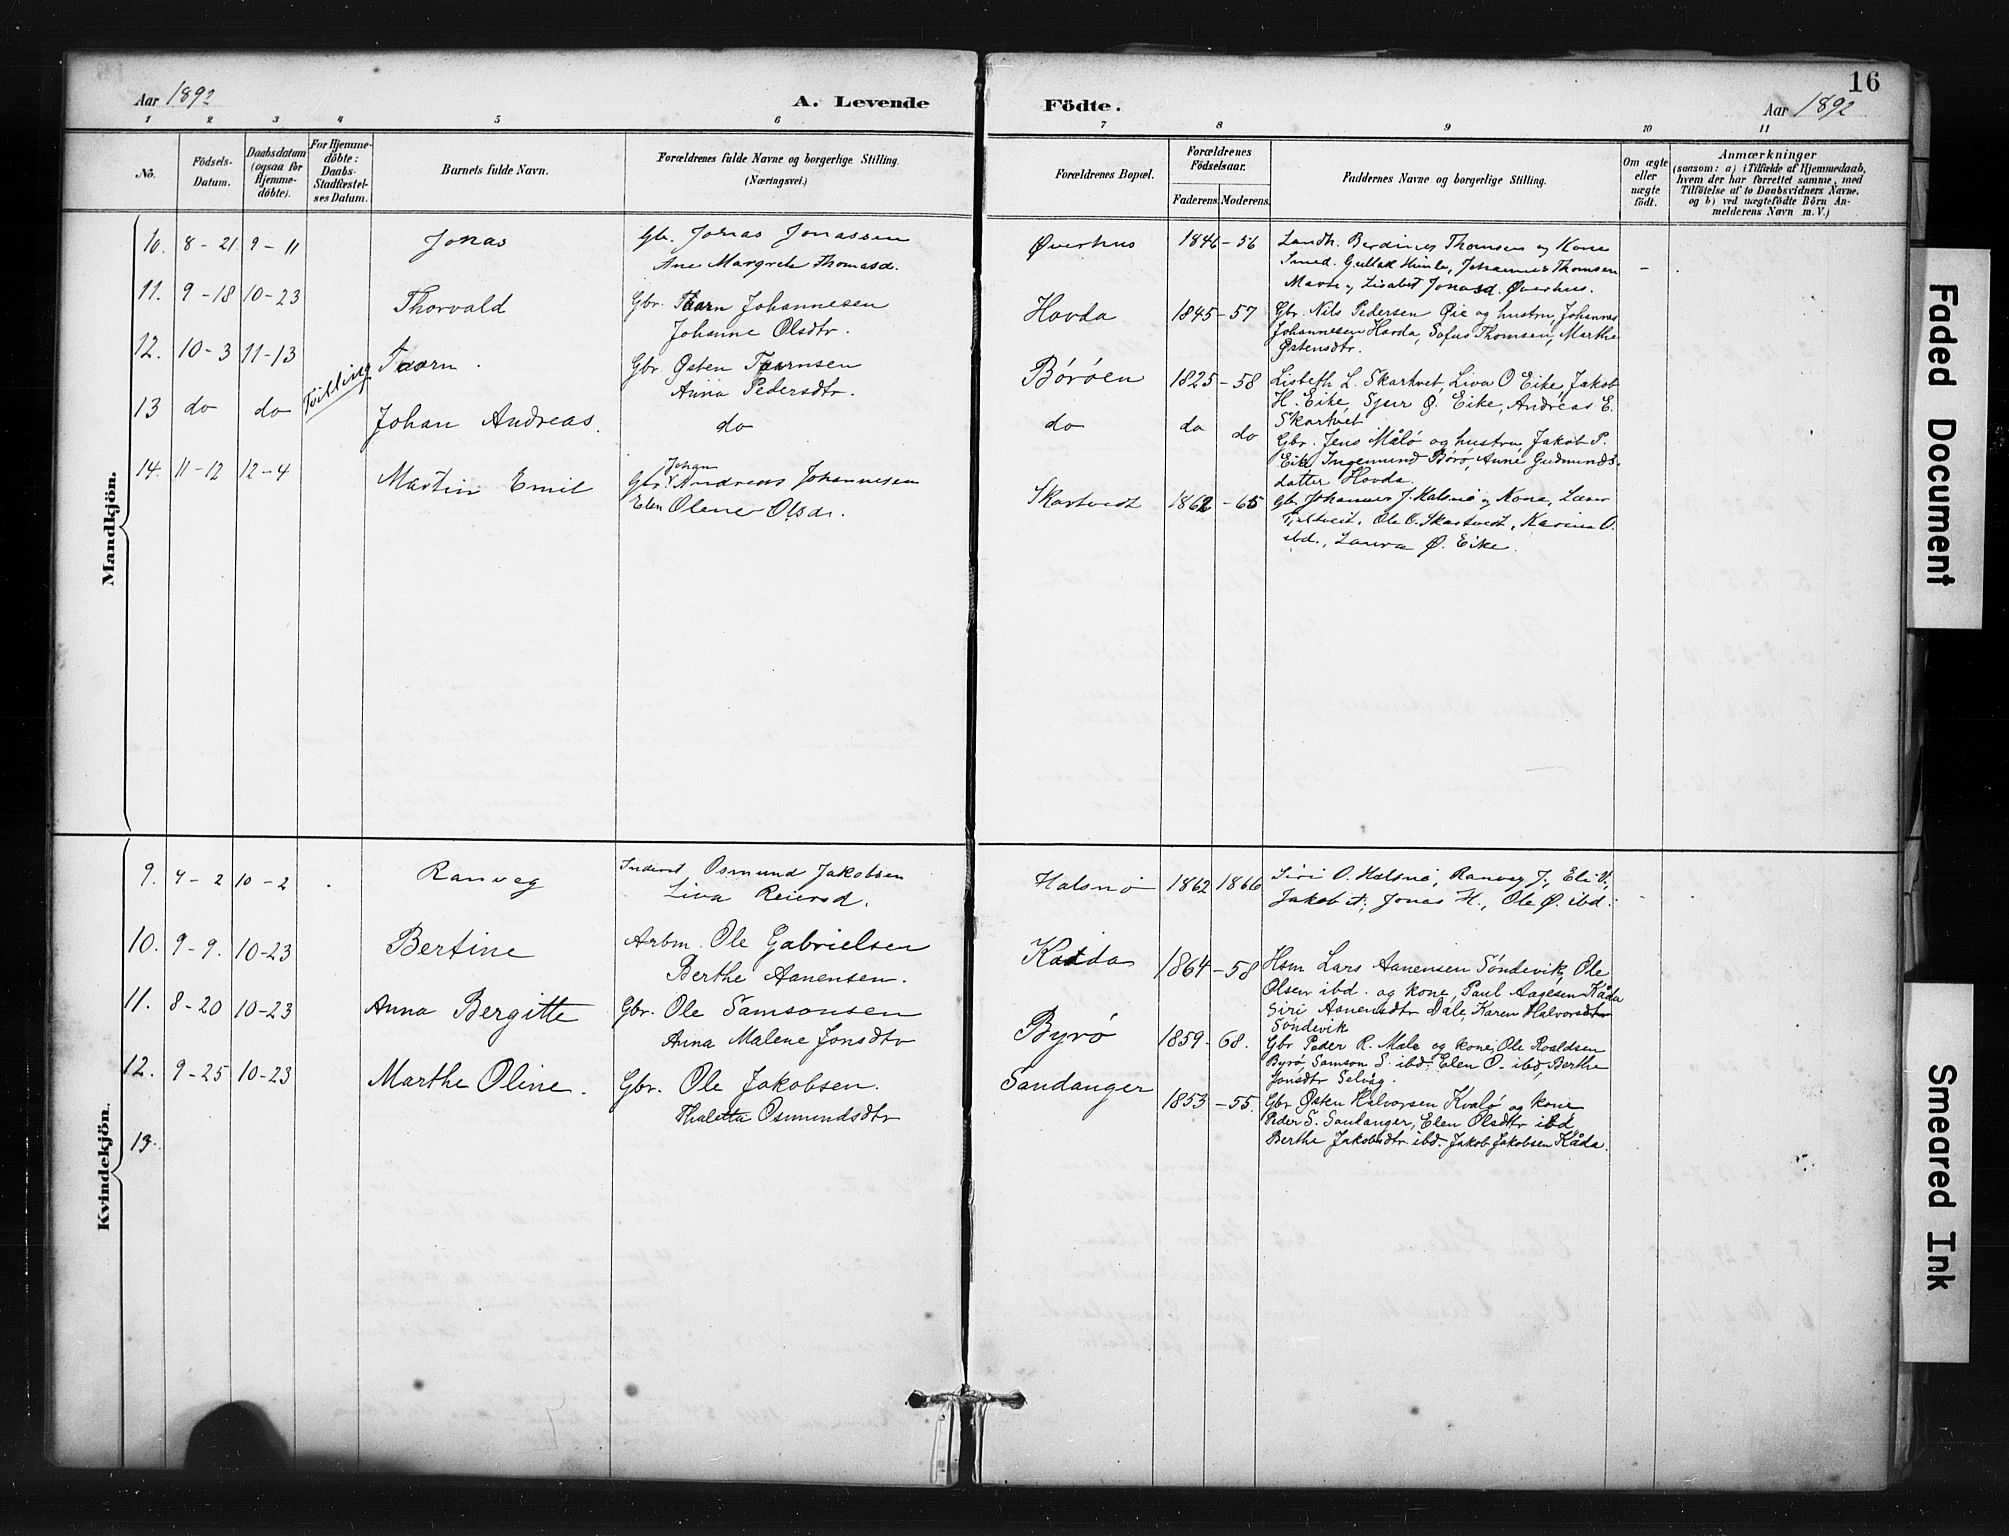 16
Aar 1892
A. Levende
Födte.
Aar 1892
1 2 3 4 5 6 7 8 9 10 11
No.
Födsels-
Datum.
Daabsdatum
(ogsaa for
Hjemme-
döbte).
For Hjemme-
döbte:
Daabs-
Stadfæstel-
ses Datum.
Barnets fulde Navn.
Forældrenes fulde Navne og borgerlige Stilling.
(Næringsvei.)
Forældrenes Bopæl.
Forældrenes
Födselsaar.
Faderens. Moderens.
Faddernes Navne og borgerlige Stilling.
Om ægte
eller
uægte
födt.
Anmærkninger
(saasom: a) i Tilfælde af Hjemmedaab,
hvem der har forrettet samme, med
Tilföielse af to Daabsvidners Navne,
og b) ved uægtefödte Börn An-
melderens Navn m. V.)
Mandkjön.
10. 8-21 9-11 Jonas Gbr. Jonas Jonassen
Ane Margrete Thomasd.
Øverhus 1846-56 Landh. Berdines Thomsen og Kone
Smed. Guttak Himle, Johannes Thomsen
Marte, Lisabet Jonasd. Øverhus.
11. 9-18 10-23 Thorvald Gbr. Taarn Johannesen
Johanne Olsdtr.
Hovda 1845-57 Gbr. Nils Pedersen Øie og hustru, Johannes
Johannesen Hovda, Sofus Thomsen, Marthe
Østensdtr.
12. 10-3 11-13 Tvilling Taarn. Gbr. Østen Taarnsen
Anna Pedersdtr.
Børøen 1825-58 Lisbeth L. Skartvet, Liva O Eike, Jakob
H. Eike, Sjur Ø. Eike, Andreas E.
Skartvet
13 do do Johan Andreas. do
do do do Gbr. Jens Målø og hustru, Jakob P.
Eike Ingemund Børø, Anne Gudmunds-
datter Hovda.
14. 11-12 12-4 Martin Emil Gbr. Johan Andreas Johannesen
Elen Olene Olsdr.
Skartvedt 1862-65 Gbr. Johannes J. Halsnø og Kone, Lars
Ole O. Skartvedt, Karina O.
ibd., Laura Ø. Eike.
Kvindekjön.
9. 4-2 10-2 Ranveg Inderst Osmund Jakobsen
Liva Reiersd.
Halsnø 1862 1866 Siri O. Halsnø, Ranveg J., Eli
Jakob Jonas H., Ole Ø. ibd.
10. 9-9. 10-23 Bertine Arbm. Ole Gabrielsen
Berthe Aanensen.
Kadda 1864-58 Hsm Lars Aanensen Søndevik, Ole
Olsen ibd. og kone, Paul Aagesen Kåda
Siri Aanensdtr Dale, Karen Halvorsdtr
Søndevik
11. 8-20 10-23 Anna Bergitte Gbr. Ole Samsonsen
Anna Malene Jonsdtr
Byrø 1859-68. Gbr Peder R. Mæle og kone, Ole Roaldsen
Byrø, Samson S. ibd. Elen O. ibd, Berthe
Jonsdtr Selvåg.
12. 9-25 10-23 Marthe Oline. Gbr. Ole Jakobsen.
Thaletta Osmundsdtr
Sandanger 1853-55. Gbr Østen Halvorsen Kvalø og kone
Peder S. Sandanger, Elen Olsdtr ibd
Berthe Jakobsdtr ibd. Jakob Jakobsen Kåda.
13.
Faded Document
Smeared Ink